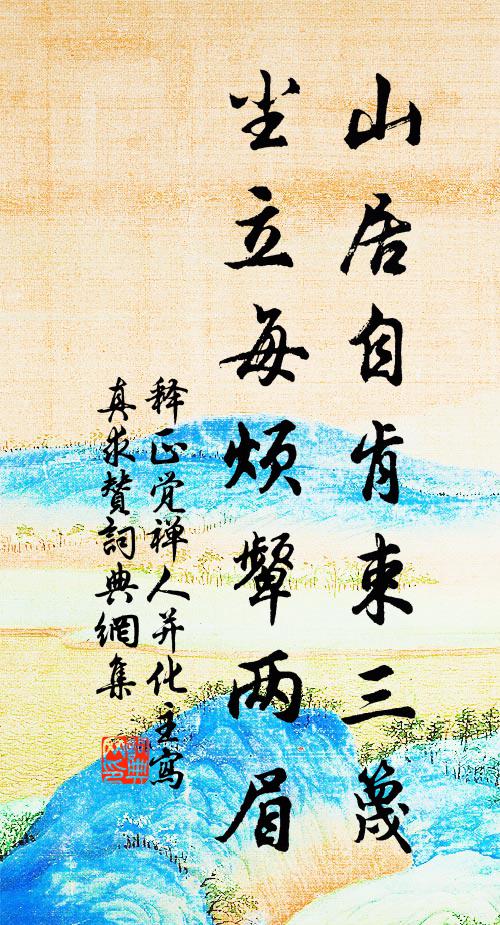 山居自肯束三篾
坐立每烦颦两眉
释正觉禅人并化主写
真求赞詞典網集